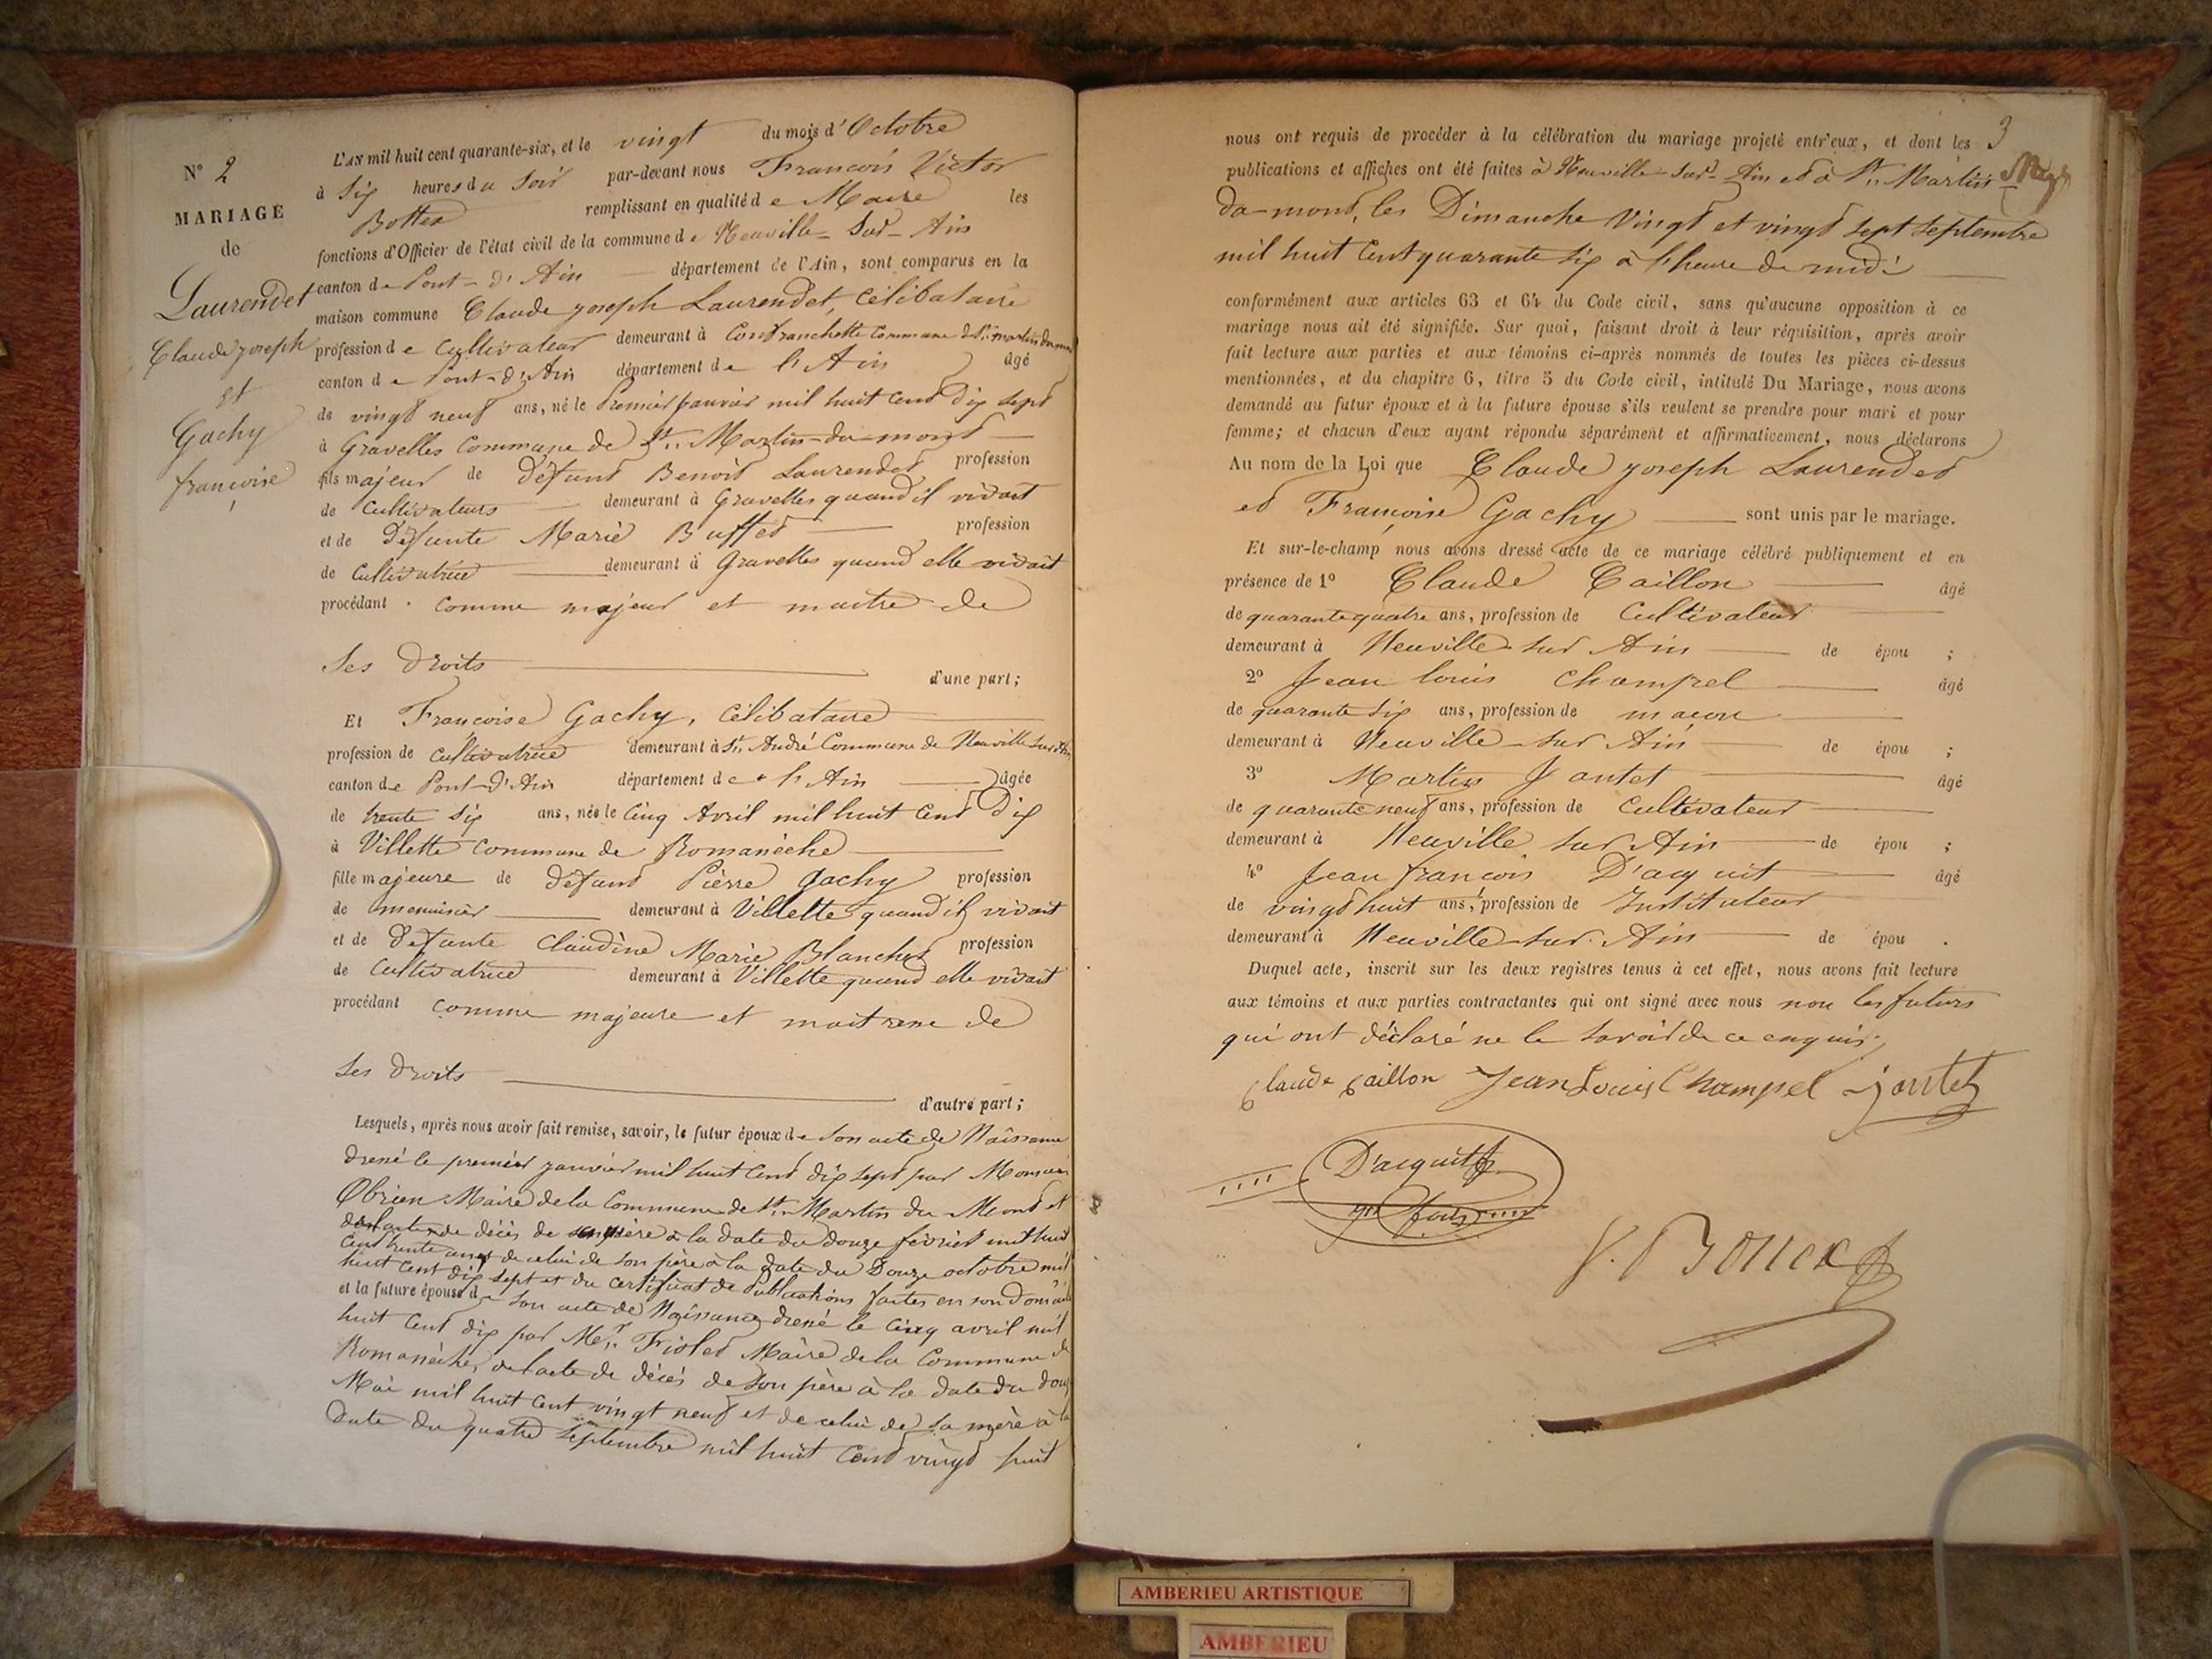 N° 2
MARIAGE
de
Laurendet
Claude joseph
et
Gachy
françoise
L'AN mil huit cent quarante-six, et le vingt du mois d'Octobre
à Six heures du Soir par-devant nous François Victor
Bottex remplissant en qualité de Maire les
fonctions d'Officier de l'état civil de la commune de Neuville-Sur-Ain
canton de Pont-d'Ain département de l'Ain, sont comparus en la
maison commune Claude joseph Laurendet, Célibataire
profession de Cultivateur demeurant à Confranchette Commune de St. martin du mont
canton de Pont-d'Ain département de l'Ain âgé
de vingt neuf ans, né le Premier janvier mil huit Cent Dix Sept
à Gravelles Commune de St. Martin-du-mont
fils majeur de défunt Benoit Laurendet profession
de Cultivateurs demeurant à Gravelles quand il vivait
et de défunte Marie Buffet profession
de Cultivatrice demeurant à Gravelles quand elle vivait
procédant comme majeur et maitre de
Ses droits d'une part;
Et Françoise Gachy, Célibataire
profession de Cultivatrice demeurant à St. André Commune de Neuville Sur Ain
canton de Pont-d'Ain département de l'Ain âgée
de trente Six ans, née le Cinq Avril mil huit Cent Dix
à Villette Commune de Romanèche
fille majeure de défunt Pierre Gachy profession
de menuisier demeurant à Villette quand il vivait
et de défunte Claudine Marie Blanchet profession
de Cultivatrice demeurant à Villette quand elle vivait
procédant comme majeure et maitresse de
Ses droits d'autre part;
Lesquels, après nous avoir fait remise, savoir, le futur époux de Son acte de Naissance
dressé le premier janvier mil huit Cent dix Sept par Monsieur
Maire de la Commune de St. Martin du Mont et
de décès de mère à la date du douze février mil huit
Cent trente de celui de Son père à la date du Douze octobre mil
huit Cent dix Sept et du Certificat de Publications faites en son Domicile
et la future épouse de Son acte de Naissance dressé le Cinq avril mil
huit Cent dix par Mr. Friolet Maire de la Commune de
Romanèche, de l'acte de décès de Son père à la date du
Mai mil huit Cent vingt neuf et de celui de Sa mère à la
date du quatre Septembre mil huit Cent vingt huit
3
nous ont requis de procéder à la célébration du mariage projeté entr'eux, et dont les
publications et affiches ont été faites à Neuville-Sur-Ain et à St. Martin
du-mont, les Dimanche Vingt et vingt Sept Septembre
mil huit Cent quarante Six à l'heure de midi
conformément aux articles 63 et 64 du Code civil, sans qu'aucune opposition à ce
mariage nous ait été signifiée. Sur quoi, faisant droit à leur réquisition, après avoir
fait lecture aux parties et aux témoins ci-après nommés de toutes les pièces ci-dessus
mentionnées, et du chapitre 6, titre 5 du Code civil, intitulé Du Mariage, nous avons
demandé au futur époux et à la future épouse s'ils veulent se prendre pour mari et pour
femme; et chacun d'eux ayant répondu séparément et affirmativement, nous déclarons
Au nom de la Loi que Claude joseph Laurendet
et Françoise Gachy sont unis par le mariage.
Et sur-le-champ nous avons dressé acte de ce mariage célébré publiquement et en
présence de 1° Claude Caillon âgé
de quarante quatre ans, profession de Cultivateur
demeurant à Neuville-Sur Ain de épou ;
2° Jean louis Champel âgé
de quarante Six ans, profession de maçon
demeurant à Neuville-Sur Ain de épou ;
3° Martin Jantet âgé
de quarante neuf ans, profession de Cultivateur
demeurant à Neuville Sur Ain de épou ;
4° Jean françois D'acquit âgé
de vingt huit ans, profession de Instituteur
demeurant à Neuville-Sur-Ain de épou .
Duquel acte, inscrit sur les deux registres tenus à cet effet, nous avons fait lecture
aux témoins et aux parties contractantes qui ont signé avec nous non les futurs
qui ont déclaré ne le Savoir de ce enquis.
Claude Caillon Jean Louis Champel jantet
D'acquit
V. Bottex
AMBERIEU ARTISTIQUE
AMBERIEU